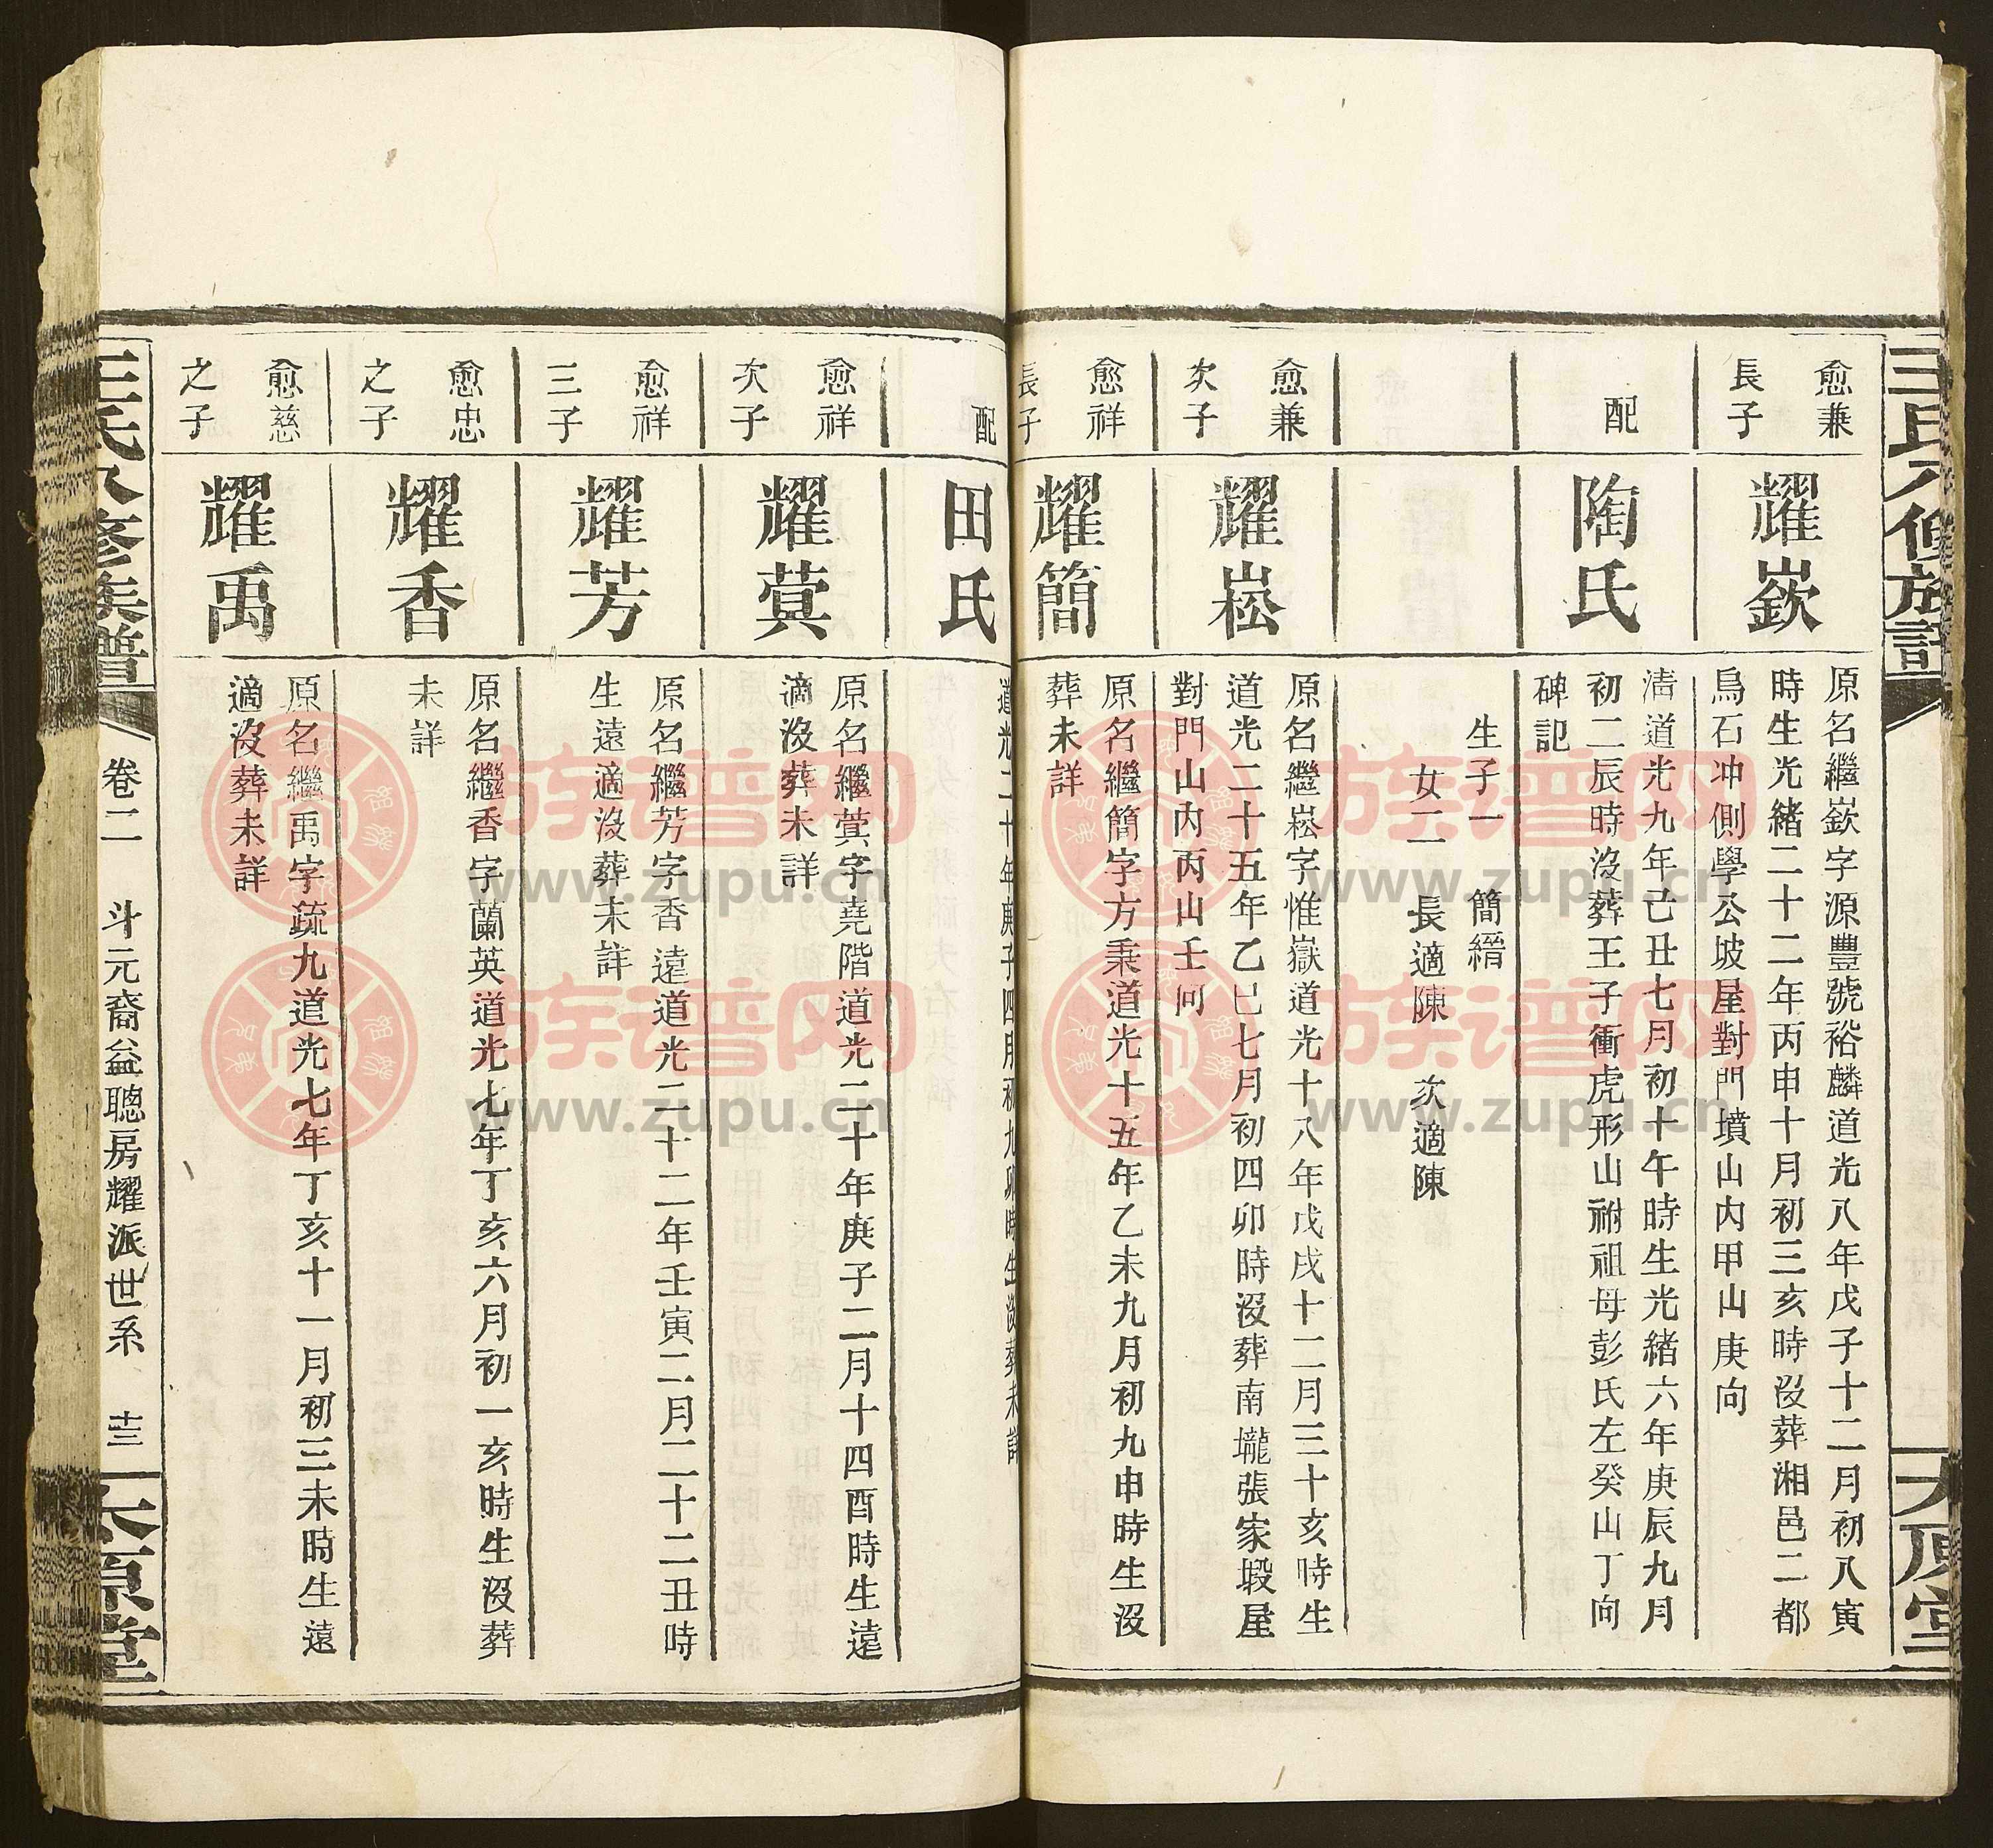 王氏八修族譜
太原堂
愈兼
長子
耀嶔
原名繼嶔字源豐號裕麟道光八年戊子十二月初八寅
時生光緒二十二年丙申十月初三亥時沒葬湘邑二都
烏石冲側學公坡屋對門墳山內甲山庚向
配
陶氏
清道光九年己丑七月初十午時生光緒六年庚辰九月
初二辰時沒葬王子衝虎形山祔祖母彭氏左癸山丁向
碑記
生子一 簡縉
女二 長適陳 次適陳
愈兼
次子
耀崧
原名繼崧字惟嶽道光十八年戊戌十二月三十亥時生
道光二十五年乙巳七月初四卯時沒葬南壠張家塅屋
對門山內丙山壬向
愈祥
長子
耀簡
原名繼簡字方秉道光十五年乙未九月初九申時生沒
葬未詳
配
田氏
道光二十年庚子四月初九卯時生沒葬未詳
愈祥
次子
耀蓂
原名繼蓂字堯階道光二十年庚子二月十四酉時生遠
適沒葬未詳
愈祥
三子
耀芳
原名繼芳字香遠道光二十二年壬寅二月二十二丑時
生遠適沒葬未詳
愈忠
之子
耀香
原名繼香字蘭英道光七年丁亥六月初一亥時生沒葬
未詳
愈慈
之子
耀禹
原名繼禹字疏九道光七年丁亥十一月初三未時生遠
適沒葬未詳
王氏八修族譜
卷二 斗元裔益聰房耀派世系 十三
太原堂
族谱网
www.zupu.cn
族谱网
www.zupu.cn
族谱网
www.zupu.cn
族谱网
www.zupu.cn